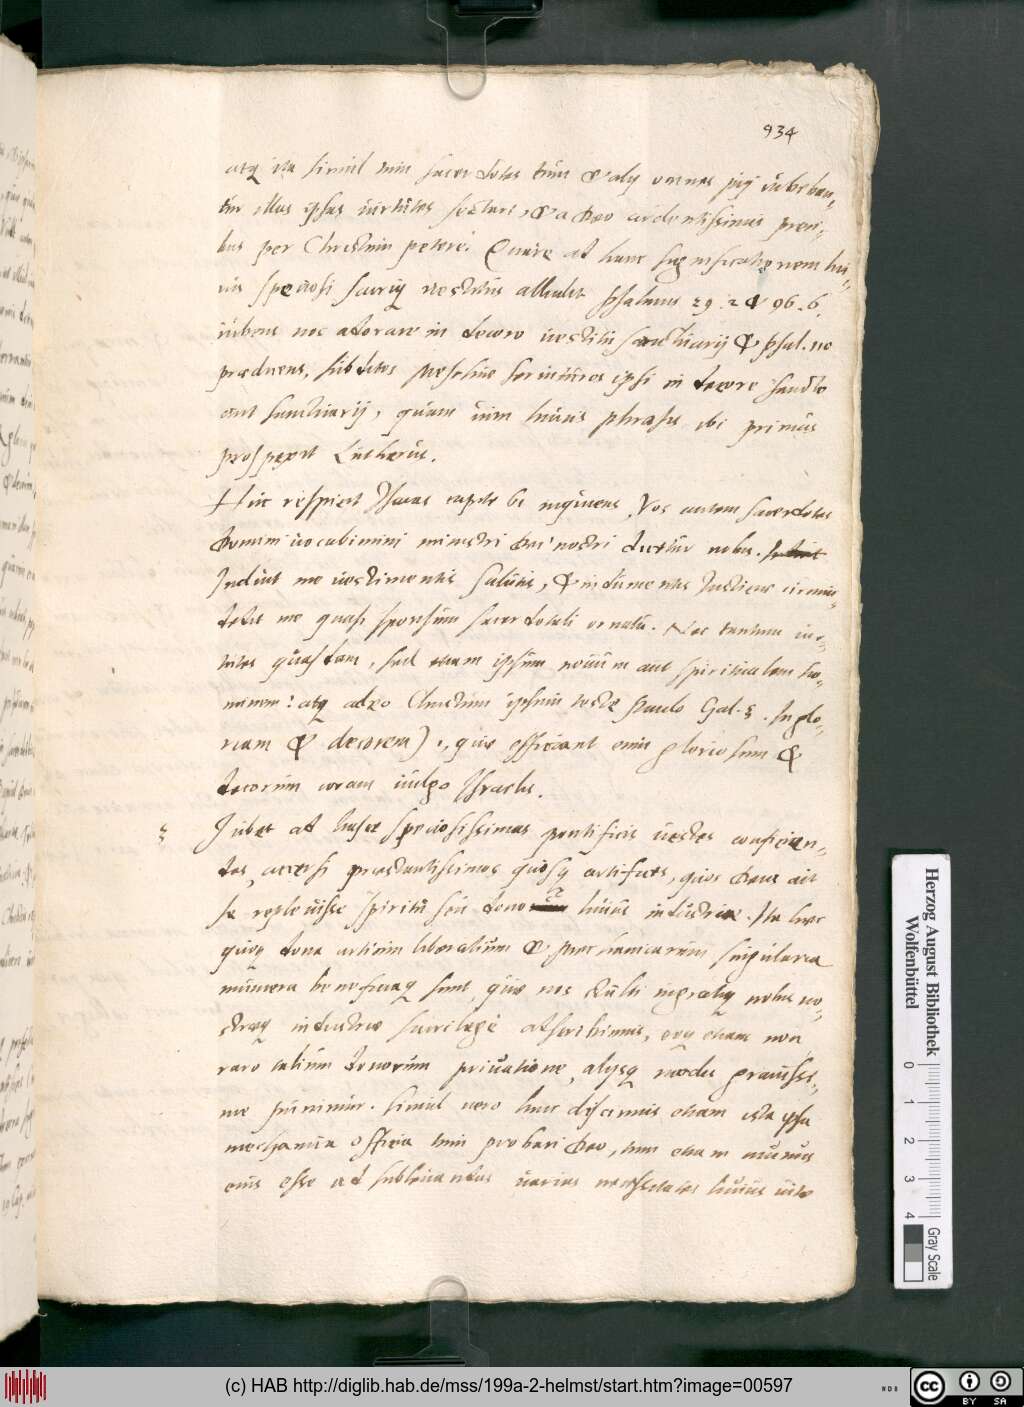 934
atq ita simul tum sacerdotes tum & alij omnes pij iubeban,,
tur illas ipsas uirtutes sectari, & a Deo ardentissimis preci,,
bus per Christum petere. Quare ad hanc significationem hui,,
us speciosi sacriq uestitus alludit psalmus 29. 2 & 96. 6.
iubens nos adorare in decoro uestitu sanctuarij & psal. 110
praedicens, subditos Messiae seruituros ipsi in decore sancto
aut sanctuarij, quam uim huius phrasis ibi primus
prospexit Lutherus.
Huc respicit Isaias capite 61 inquiens, Vos autem sacerdotes
Domini uocabimini ministri Dei nostri dicetur uobis.
Induit me uestimentis salutis, & indumentis Iustitiae circum,,
dedit me quasi sponsum sacerdotali ornatu. Nec tantum uir,,
tutes quasdam, sed etiam ipsum nouum aut spiritualem ho,,
minem: atq adeo Christum ipsum teste Paulo Gal. 3. In glo,,
riam & decorem), quae efficiant eum gloriosum &
decorum coram uulgo Israelis.
3 Iubet ad hasce speciosissimas pontificis uestes conficien,,
das, accersi praestantissimos quosq artifices, quos Deus ait
se repleuisse spiritu seu dono huius industriae. Ita haec
quoq dona artium liberalium & mechanicarum singularia
munera beneficiaq sunt, quae nos stulti ingratiq nobis no,,
straeq industriae sacrilege adscribimus, eoq etiam non
raro talium donorum priuatione, alijsq modis grauissi,,
me punimur. Simul uero hinc discimus etiam ista ipsa
mechanica officia tum probari Deo, tum etiam munus
eius esse ad subleuandas uarias necessitates huius uitae
Herzog August Bibliothek
Wolfenbüttel
0 1 2 3 4
Gray Scale
(c) HAB http://diglib.hab.de/mss/199a-2-helmst/start.htm?image=00597
CC BY SA